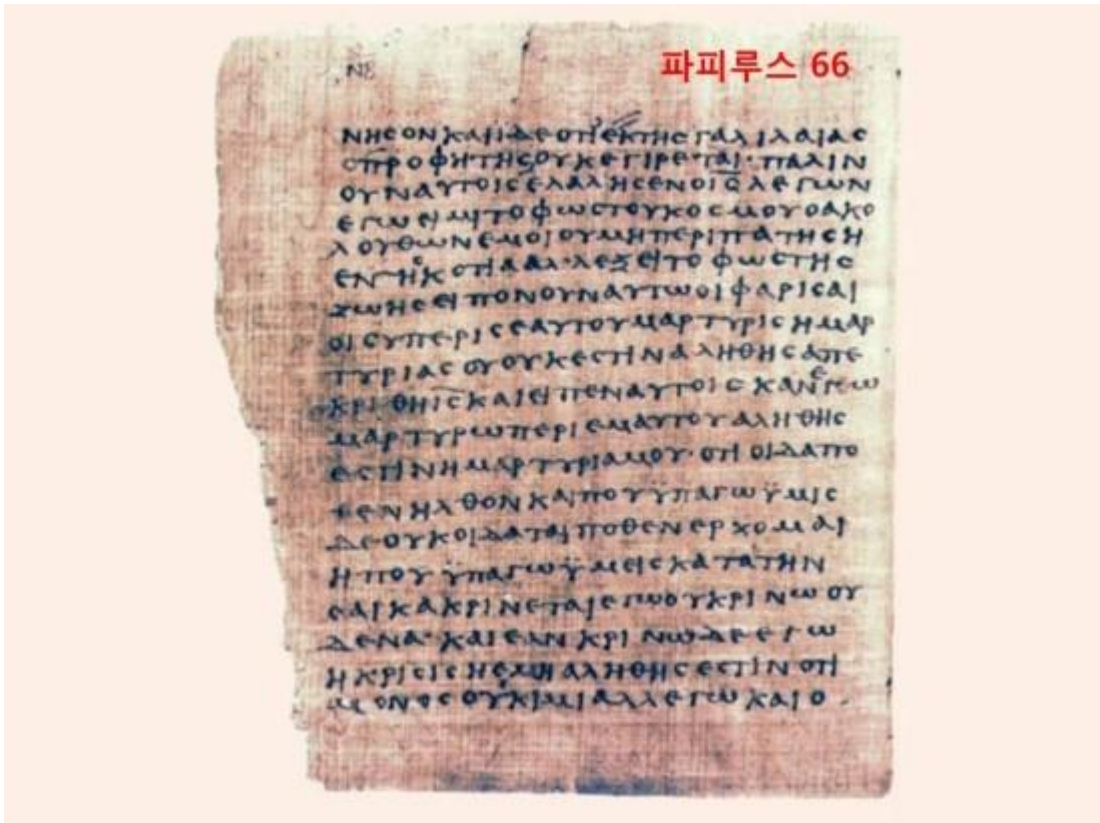 ΝΕ
파피루스 66
ΝΗϹΟΝΚΑΙΙΔΕΟΤΙΕΚΤΗϹΓΑΛΙΛΑΙΑϹ
ΟΠΡΟΦΗΤΗϹΟΥΚΕΓΙΡΕΤΑΙ·ΠΑΛΙΝ
ΟΥΝΑΥΤΟΙϹΕΛΑΛΗϹΕΝΟΙ̅Ϲ̅ΛΕΓΩΝ
ΕΓΩΕΙΜΙΤΟΦΩϹΤΟΥΚΟϹΜΟΥΟΑΚΟ
ΛΟΥΘΩΝΕΜΟΙΟΥΜΗΠΕΡΙΠΑΤΗϹΗ
ΕΝΤΗϹΚΟΤΙΑΑΛΛΕΞΕΙΤΟΦΩϹΤΗϹ
ΖΩΗϹΕΙΠΟΝΟΥΝΑΥΤΩΟΙΦΑΡΙϹΑΙ
ΟΙϹΥΠΕΡΙϹΕΑΥΤΟΥΜΑΡΤΥΡΙϹΗΜΑΡ
ΤΥΡΙΑϹΟΥΟΥΚΕϹΤΙΝΑΛΗΘΗϹΑΠΕ
ΚΡΙΘΗΙ̅Ϲ̅ΚΑΙΕΙΠΕΝΑΥΤΟΙϹΚΑΝΕΓΩ
ΜΑΡΤΥΡΩΠΕΡΙΕΜΑΥΤΟΥΑΛΗΘΗϹ
ΕϹΤΙΝΗΜΑΡΤΥΡΙΑΜΟΥ·ΟΤΙΟΙΔΑΠΟ
ΘΕΝΗΛΘΟΝΚΑΙΠΟΥΫΠΑΓΩΫΜΙϹ
ΔΕΟΥΚΟΙΔΑΤΑΙΠΟΘΕΝΕΡΧΟΜΑΙ
ΗΠΟΥΫΠΑΓΩΫΜΕΙϹΚΑΤΑΤΗΝ
ϹΑΡΚΑΚΡΙΝΕΤΑΙΕΓΩΟΥΚΡΙΝΩΟΥ
ΔΕΝΑ·ΚΑΙΕΑΝΚΡΙΝΩΔΕΕΓΩ
ΗΚΡΙϹΙϹΗΕΜΗΑΛΗΘΗϹΕϹΤΙΝΟΤΙ
ΜΟΝΟϹΟΥΚΙΜΙΑΛΛΕΓΩΚΑΙΟ